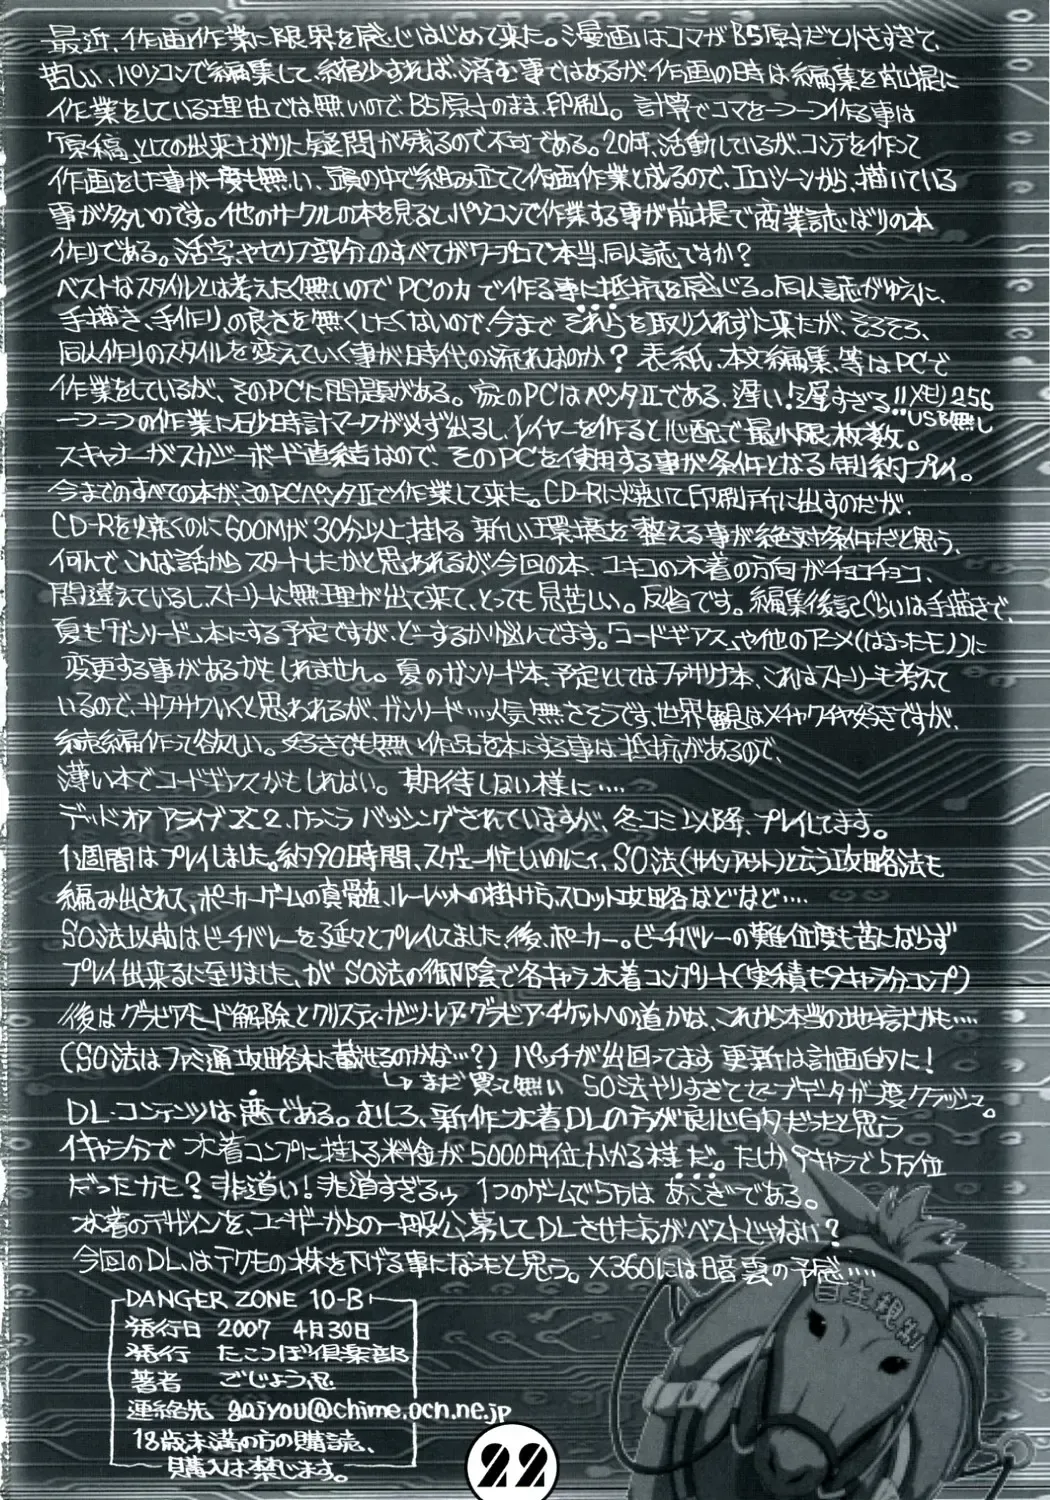 最近、作画作業に限界を感じはじめて来た。漫画はコマがB5原寸だと小さすぎて、
苦しい、パソコンで編集して、縮少すれば、済む事ではあるが、作画の時は編集を前提に
作業をしている理由では無いので、B5原寸のまま、印刷。計算でコマを一つ一つ作る事は
「原稿」としての出来上がりに疑問が残るので不可である。20年、活動しているが、コンテを作って
作画をした事が一度も無い、頭の中で組み立てて作画作業と成るので、エロシーンから、描いている
事が多いのです。他のサークルの本を見ると、パソコンで作業する事が前提で商業誌ばりの本
作りである。活字やセリフ部分のすべてがワープロで本当、同人誌ですか?
ベストなスタイルとは考えたく無いのでPCの力で作る事に抵抗を感じる。同人誌がゆえに、
手描き、手作り、の良さを無くしたくないので、今までそれらを取り入れずに来たが、そろそろ、
同人作りのスタイルを変えていく事が時代の流れなのか?表紙、本文編集、等はPCで
作業をしているが、そのPCに問題がある。家のPCはペンタIIである、遅い!遅すぎる!!メモリ256
USB無し
一つ一つの作業に砂時計マークが必ず出るし、レイヤーを作ると心配で最小限枚数。
スキャナーがスカジーボード直結なので、そのPCを使用する事が条件となる制約プレイ。
今までのすべての本が、このPCペンタIIで作業して来た。CD-Rに焼いて印刷所に出すのだが、
CD-Rを焼くのに600Mが30分以上掛る 新しい環境を整える事が絶対条件だと思う、
何んで、こんな話からスタートしたかと思われるが今回の本、ユキコの水着の方向がチョコチョコ、
間違えているし、ストーリーに無理が出て来て、とっても見苦しい。反省です。編集後記ぐらいは手描きで、
夏も「ガンソード」本にする予定ですが、どーするか悩んでます。「コードギアス」や他のアニメ(はまったモノ)に
変更する事があるかもしれません。夏のガンソード本、予定としてはファサリナ本、これはストーリーも考えて
いるので、サクサクいくと思われるが、ガンソード…人気無さそうです、世界観はメチャクチャ好きですが、
続編作って欲しい。好きでも無い作品を本にする事は抵抗があるので、
薄い本でコードギアスかもしれない。期待しない様に….
デッド オア アライブX2、けっこうバッシングされていますが、冬コミ以降、プレイしてます。
1週間はプレイしました。約90時間、スゲェー忙しいのにィ、SO法(サインアウト)と云う攻略法も
編み出されて、ポーカーゲームの真髄、ルーレットの掛け方、スロット攻略などなど….
SO法以前はビーチバレーを延々とプレイしてました 後、ポーカー。ビーチバレーの難位度も苦にならず
プレイ出来るに至りました、が SO法の御陰で各キャラ水着コンプリート(実積も9キャラ分コンプ)
後はグラビアモード解除とクリスティ・ガッツ・レア・グラビア・チケットへの道かな、これから本当の地獄かも….
(SO法はファミ通攻略本に載せるのかな…?) パッチが出回ってます 更新は計画的に!
まだ買って無い SO法やりすぎてセーブデータが1度クラッシュ。
DL・コンテンツは悪である。むしろ、新作水着DLの方が良心的だったと思う
1キャラ分で 水着コンプに掛る料金が5000円位かかる様だ。たしか9キャラで5万位
だったカモ?非道い!非道すぎるッ 1つのゲームで5万は あこぎである。
水着のデザインを、ユーザーからの一般公募してDLさせた方がベストじゃない?
今回のDLはテクモの株を下げる事になったと思う。X360には暗雲の予感….
DANGER ZONE 10-B
発行日 2007 4月30日
発行 たこつぼ倶楽部
著者 ごじょう忍
連絡先 gojyou@chime.ocn.ne.jp
18歳未満の方の購読、
購入は禁じます。
自主規制
22